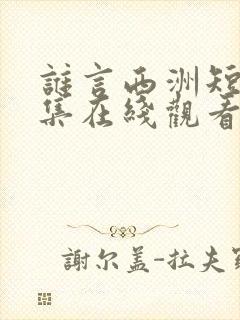 誰言西洲短
集在綫觀看
謝尔盖-拉夫